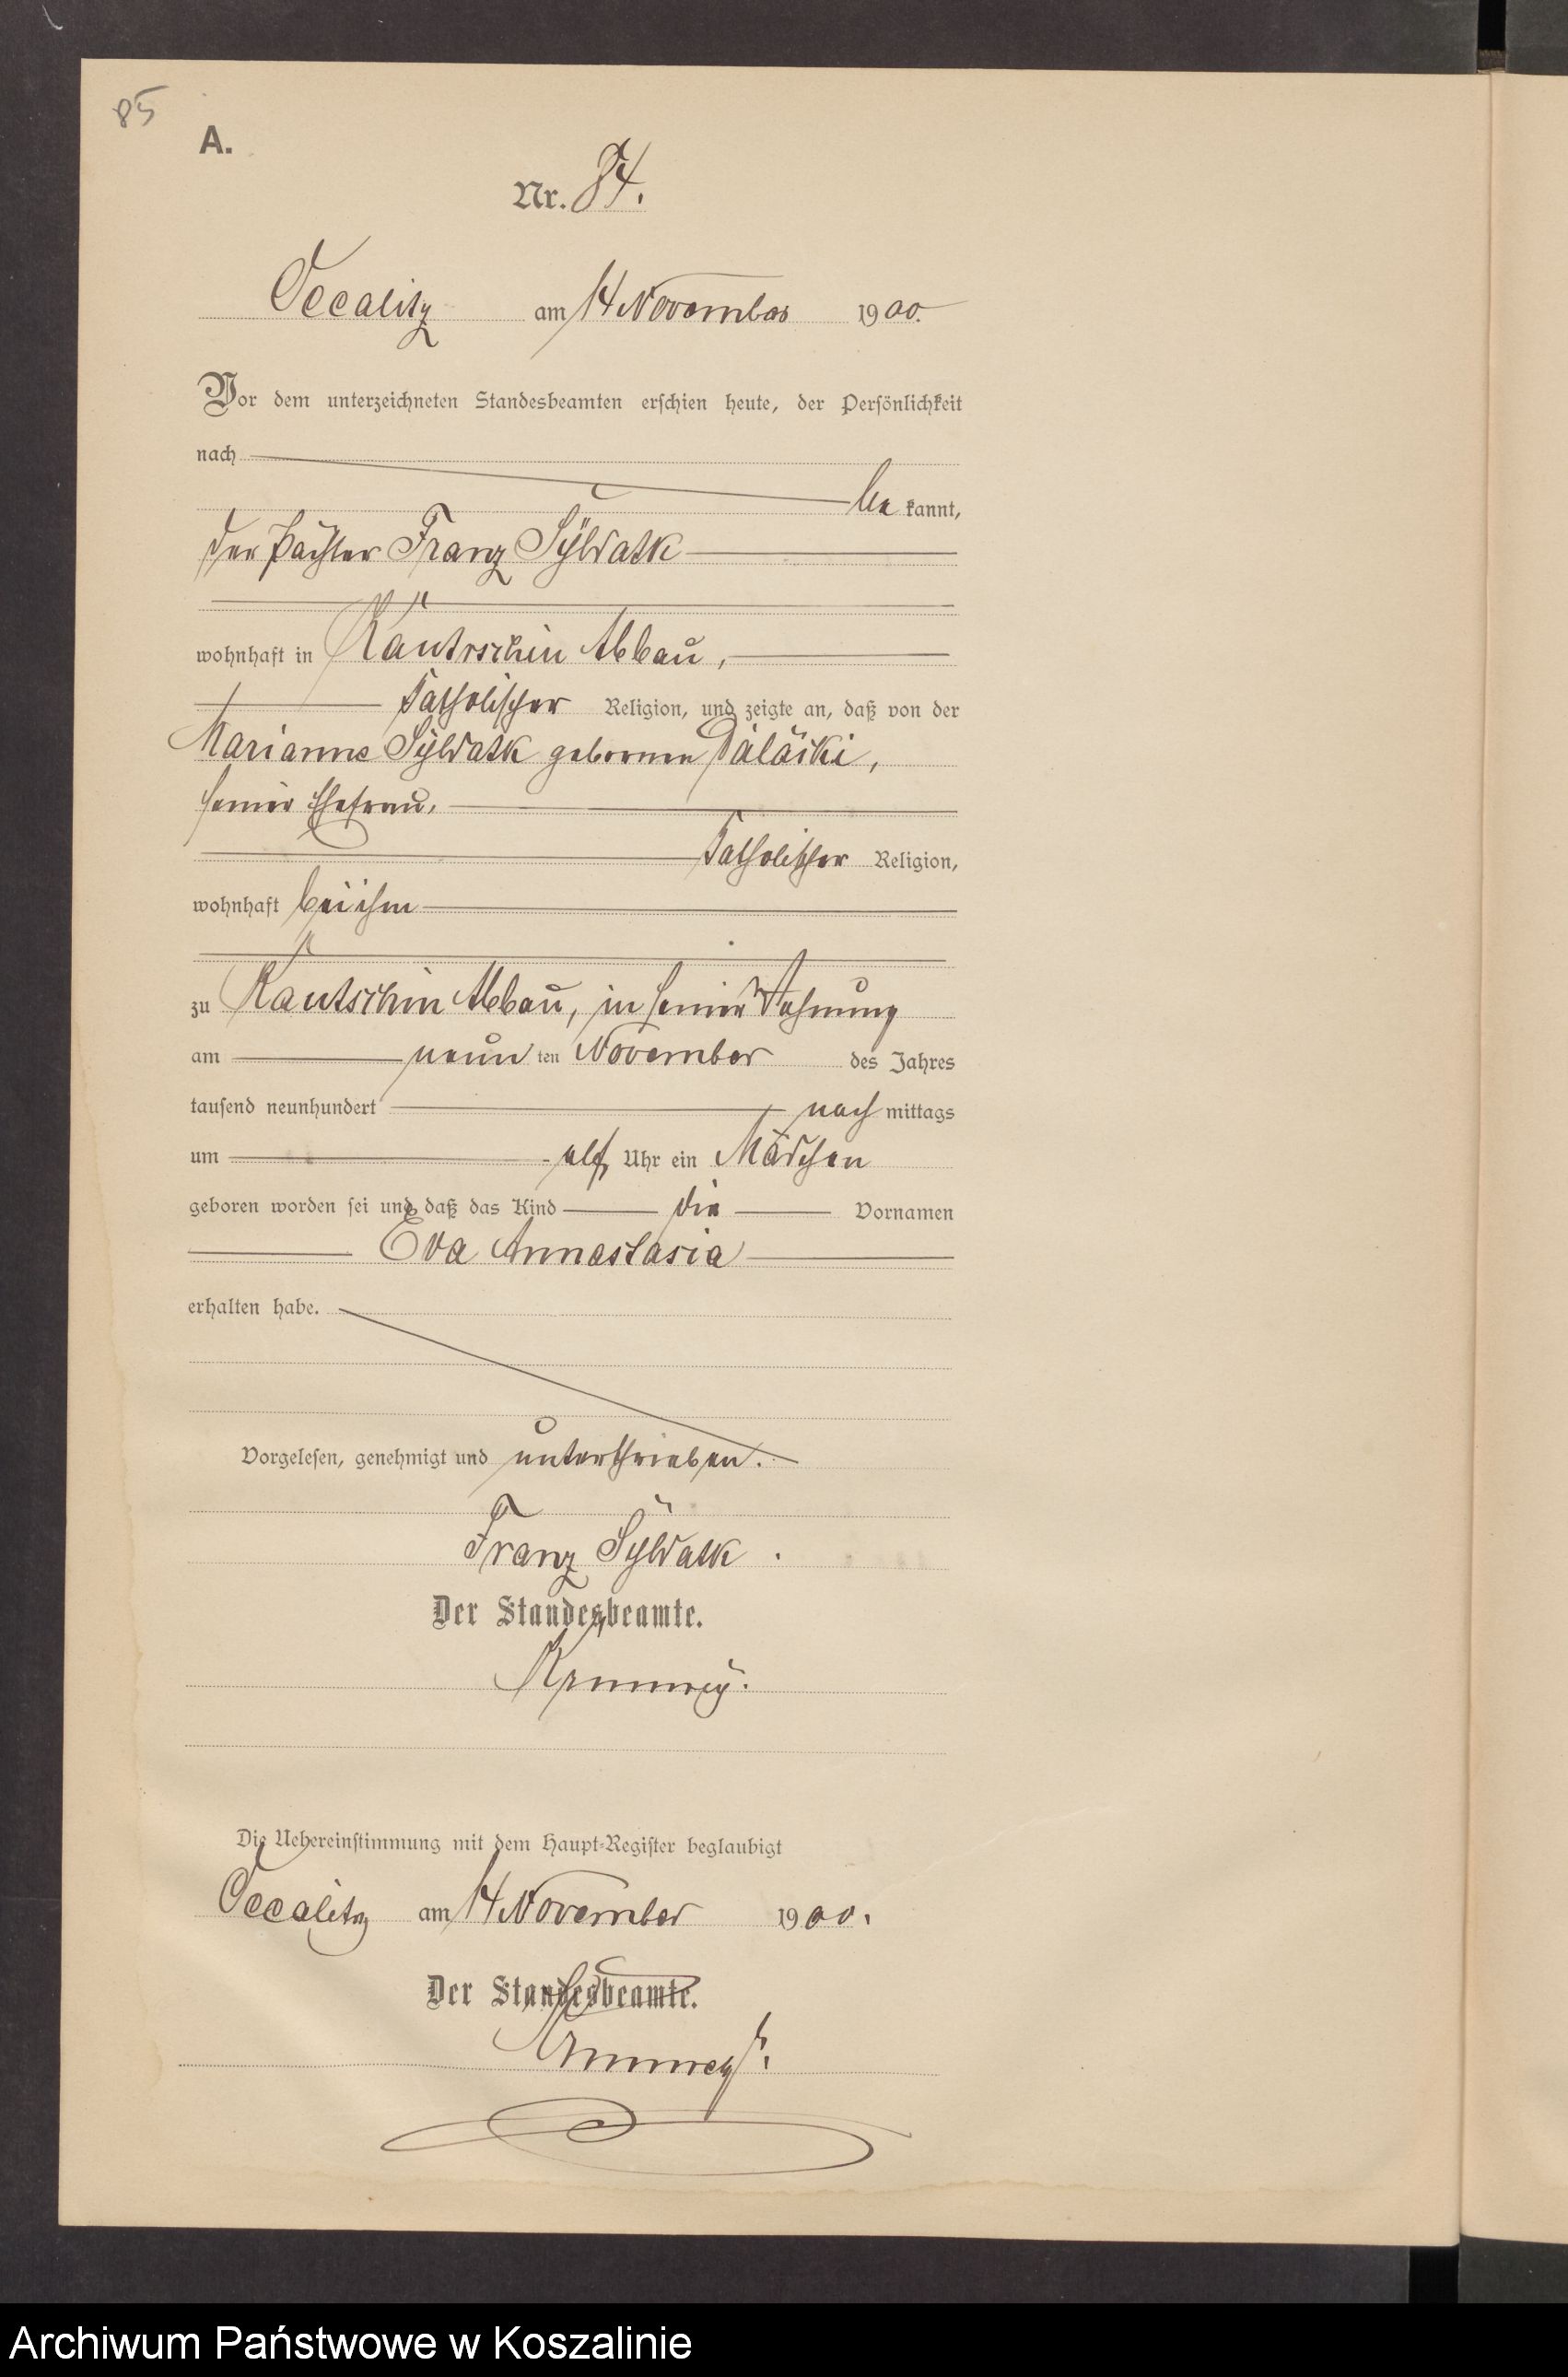 85
A.
Nr. 84.
Occalitz am 14 November 1900.
Vor dem unterzeichneten Standesbeamten erschien heute, der Persönlichkeit
nach
be kannt,
der Pächter Franz Syldatk
wohnhaft in Kautrschin Abbau,
katholischer Religion, und zeigte an, daß von der
Marianne Syldatk geborenen
seiner Ehefrau,
katholischer Religion,
wohnhaft bei ihm
zu Kautschin Abbau, in seiner Wohnung
am neun ten November des Jahres
tausend neunhundert nach mittags
um elf Uhr ein Mädchen
geboren worden sei und daß das Kind die Vornamen
Eva Annastasia
erhalten habe.
Vorgelesen, genehmigt und unterschrieben.
Franz Syldatk.
Der Standesbeamte.
Die Uebereinstimmung mit dem Haupt-Register beglaubigt
Occalitz am 14 November 1900.
Der Standesbeamte.
Archiwum Państwowe w Koszalinie